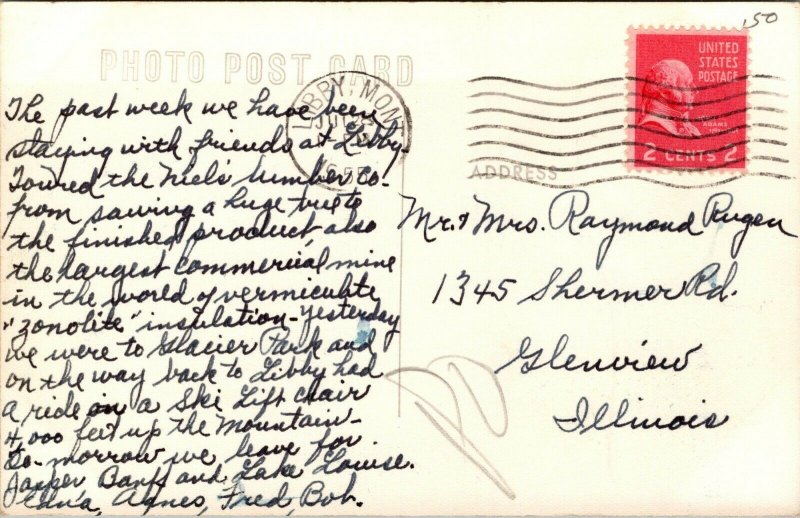 .50
PHOTO POST CARD
LIBBY, MONT.
UNITED
STATES
POSTAGE
ADAMS
2 CENTS 2
ADDRESS
The past week we have been
staying with friends at Libby
Toured the Niels lumber Co-
from sawing a huge tree to
the finished product, also
the largest commercial mine
in the world of vermiculite
"zonolite" insulation - Yesterday
we were to Glacier Park and
on the way back to Libby had
a ride on a Ski Lift chair
4,000 feet up the Mountain -
To-morrow we leave for
Jasper Banff and Lake Louise.
Edna, Agnes, Fred, Bob.
Mr. & Mrs. Raymond Rugen
1345 Shermer Rd.
Glenview
Illinois